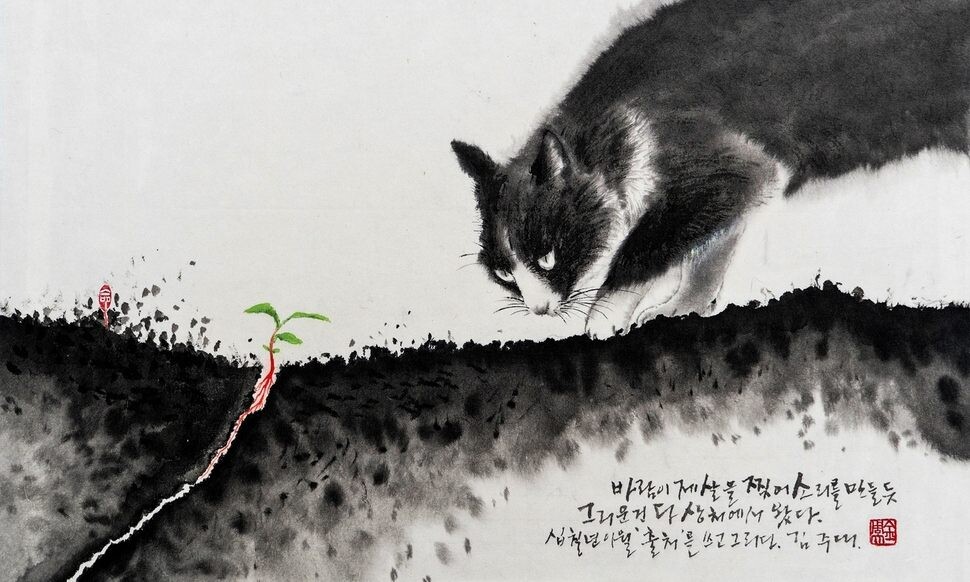 命
바람이 제 살을 찢어 소리를 만들듯
그리운 건 다 상처에서 왔다.
십칠년 '출처'를 쓰고 그리다. 김주대.